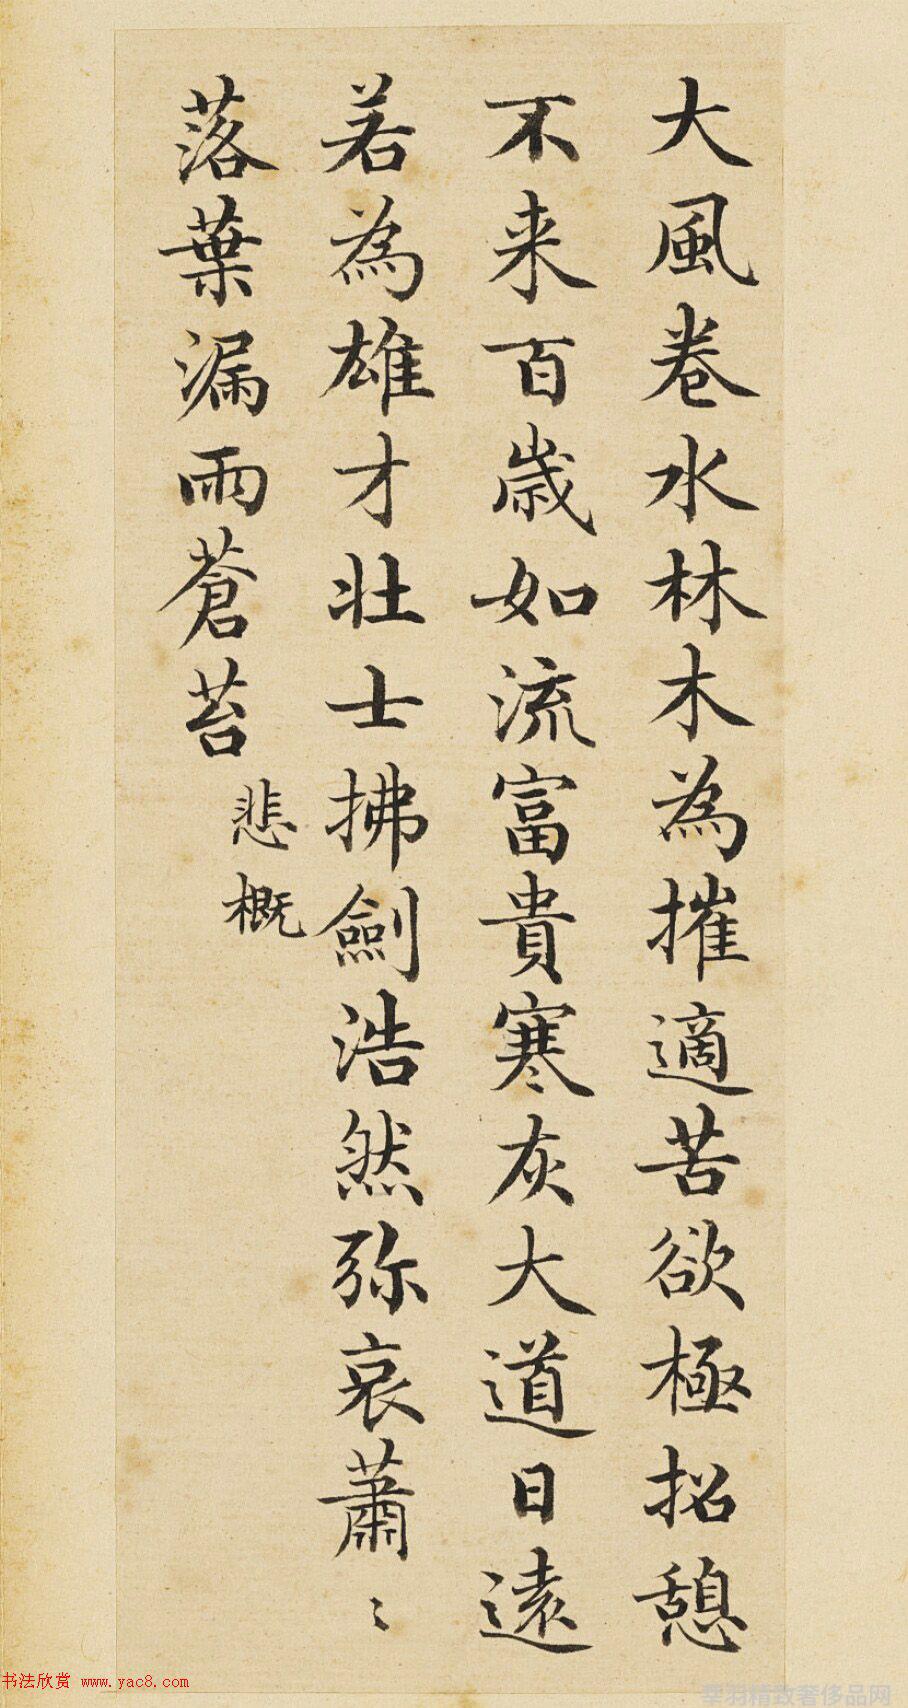 大風卷水林木為摧適苦欲極招憩
不来百歲如流富貴寒灰大道日遠
若為雄才壯士拂劍浩然弥哀蕭〻
落葉漏雨蒼苔
悲概
书法欣赏 www.yac8.com
羽精致奢侈品网